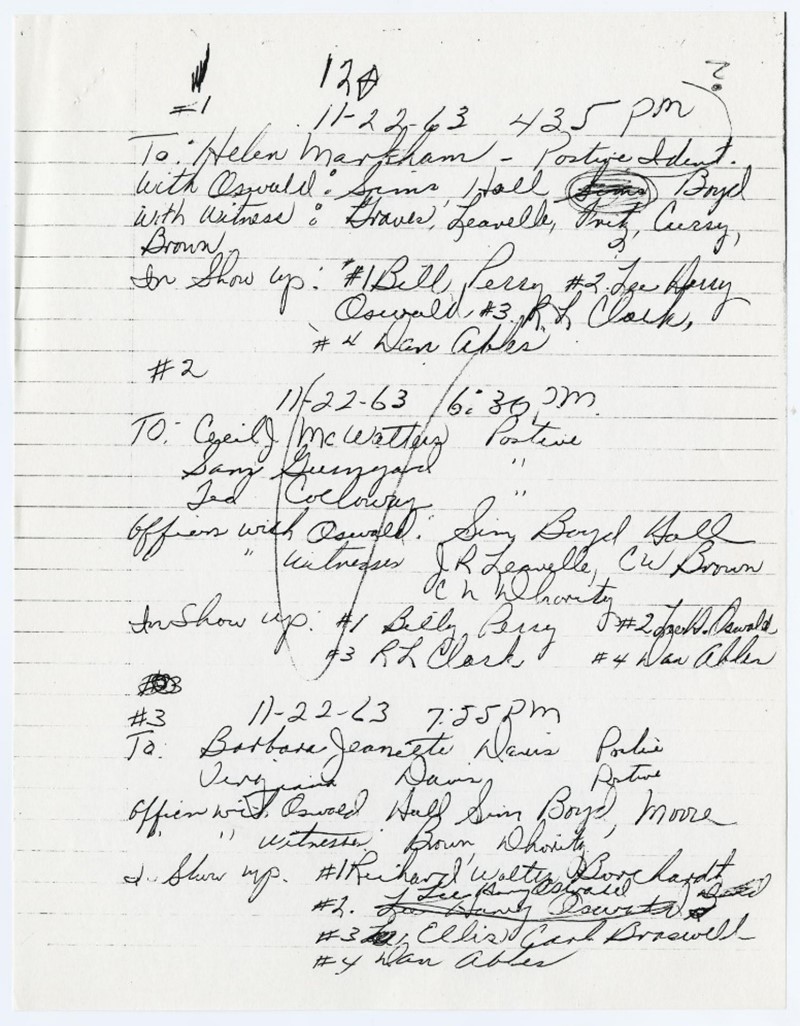 12A
?
#1 11-22-63 435 PM
To: Helen Markham - Postive Ident.
With Oswald: Sims, Hall Sims Boyd
With Witness: Graves, Leavelle, Fritz, Curry,
Brown
In Show up: #1 Bill Perry #2. Lee Harry
Oswald, #3, R L Clark,
#4 Dan Ables
#2
11-22-63 6:30 PM.
TO: Cecil J McWatters Postive
Sam Guinyard "
Ted Colloway "
Officers with Oswald: Sims Boyd Hall
" Witnesses J.R. Leavelle, CW Brown
C N Dhority
In Show up: #1 Billy Perry #2 Lee H. Oswald
#3 R L Clark #4 Dan Ables
#3 11-22-63 7:55 PM
To: Barbara Jeanette Davis Postive
Virginia Davis Postive
Officers with Oswald Hall Sims Boyd, Moore
" " Witnesses: Brown Dhority
In Show up. #1 Richard Walter Borchardt
Lee Harvy Oswald
#2. Lee Harvey Oswald
#3 Ellis Carl Braswell
#4 Dan Ables